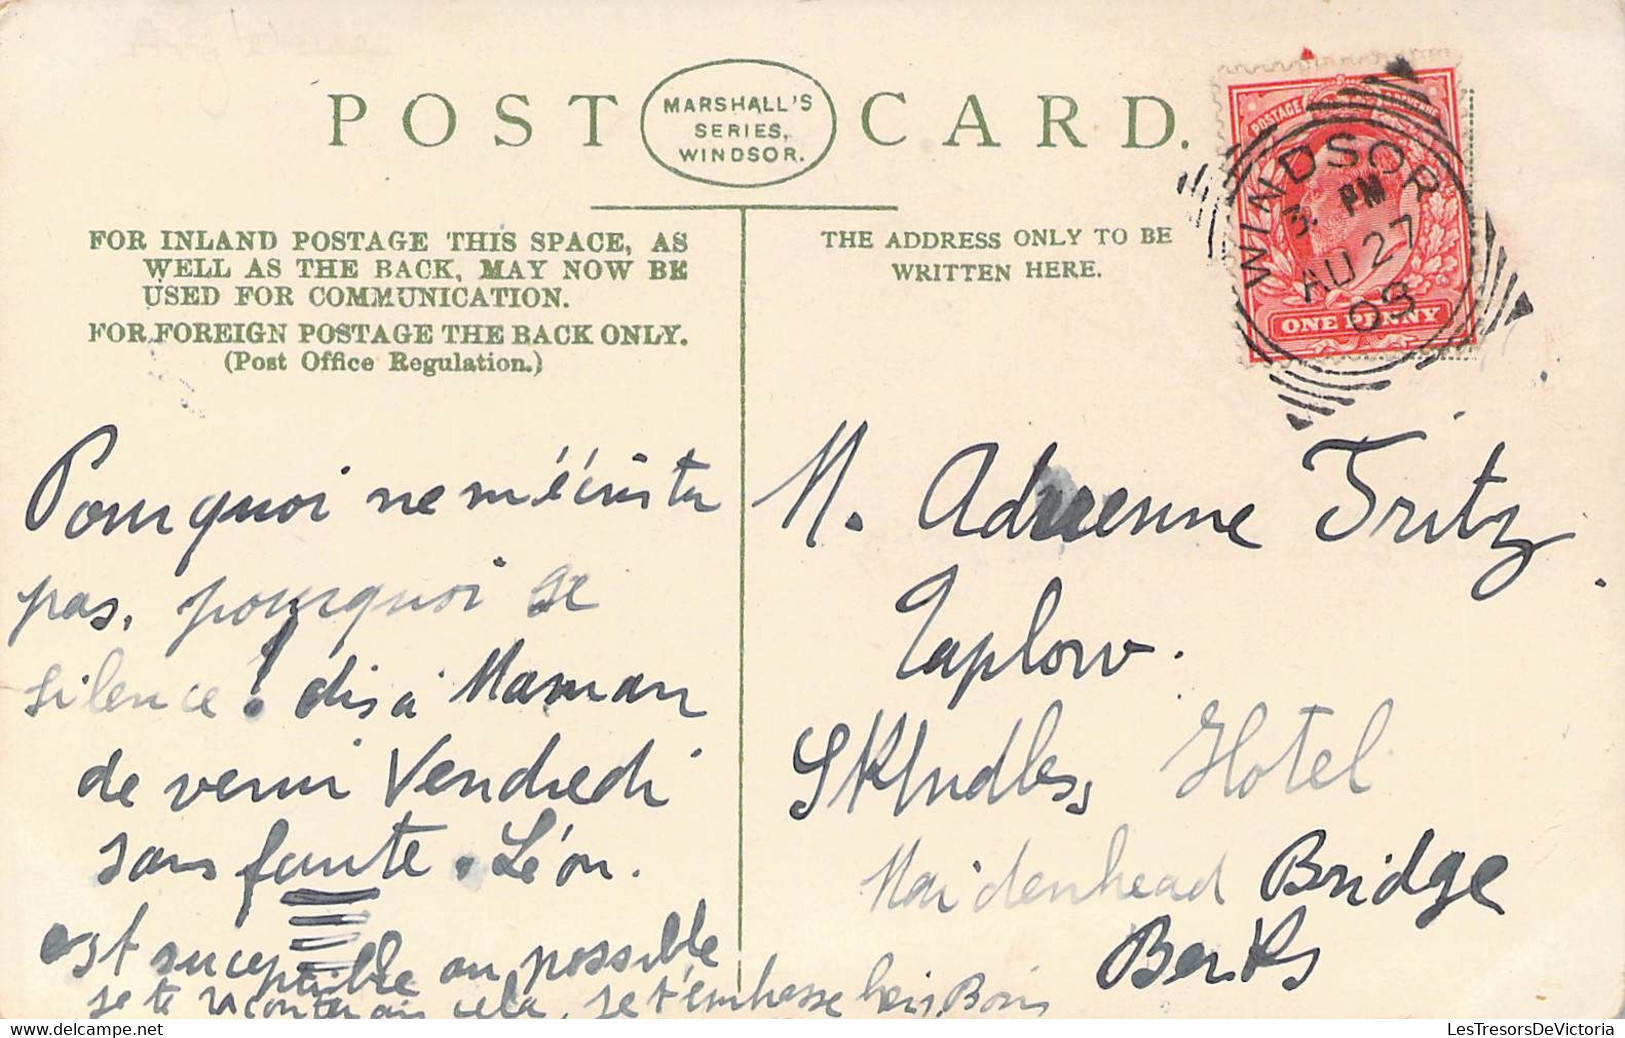 POST CARD.
MARSHALL'S
SERIES,
WINDSOR.
FOR INLAND POSTAGE THIS SPACE, AS
WELL AS THE BACK, MAY NOW BE
USED FOR COMMUNICATION.
FOR FOREIGN POSTAGE THE BACK ONLY.
(Post Office Regulation.)
THE ADDRESS ONLY TO BE
WRITTEN HERE.
POSTAGE
ONE PENNY
WINDSOR
3. PM
AU 27
09
Pourquoi ne m'écris tu
pas, pourquoi se
silence! dis à Maman
de venir Vendredi
sans faute. Léon.
est suceptible ou possible
je te raconterais cela, je t'embrasse
M. Adrienne Fritz
Taplow.
Skindles, Hotel
Maidenhead Bridge
Berks
LesTresorsDeVictoria
www.delcampe.net